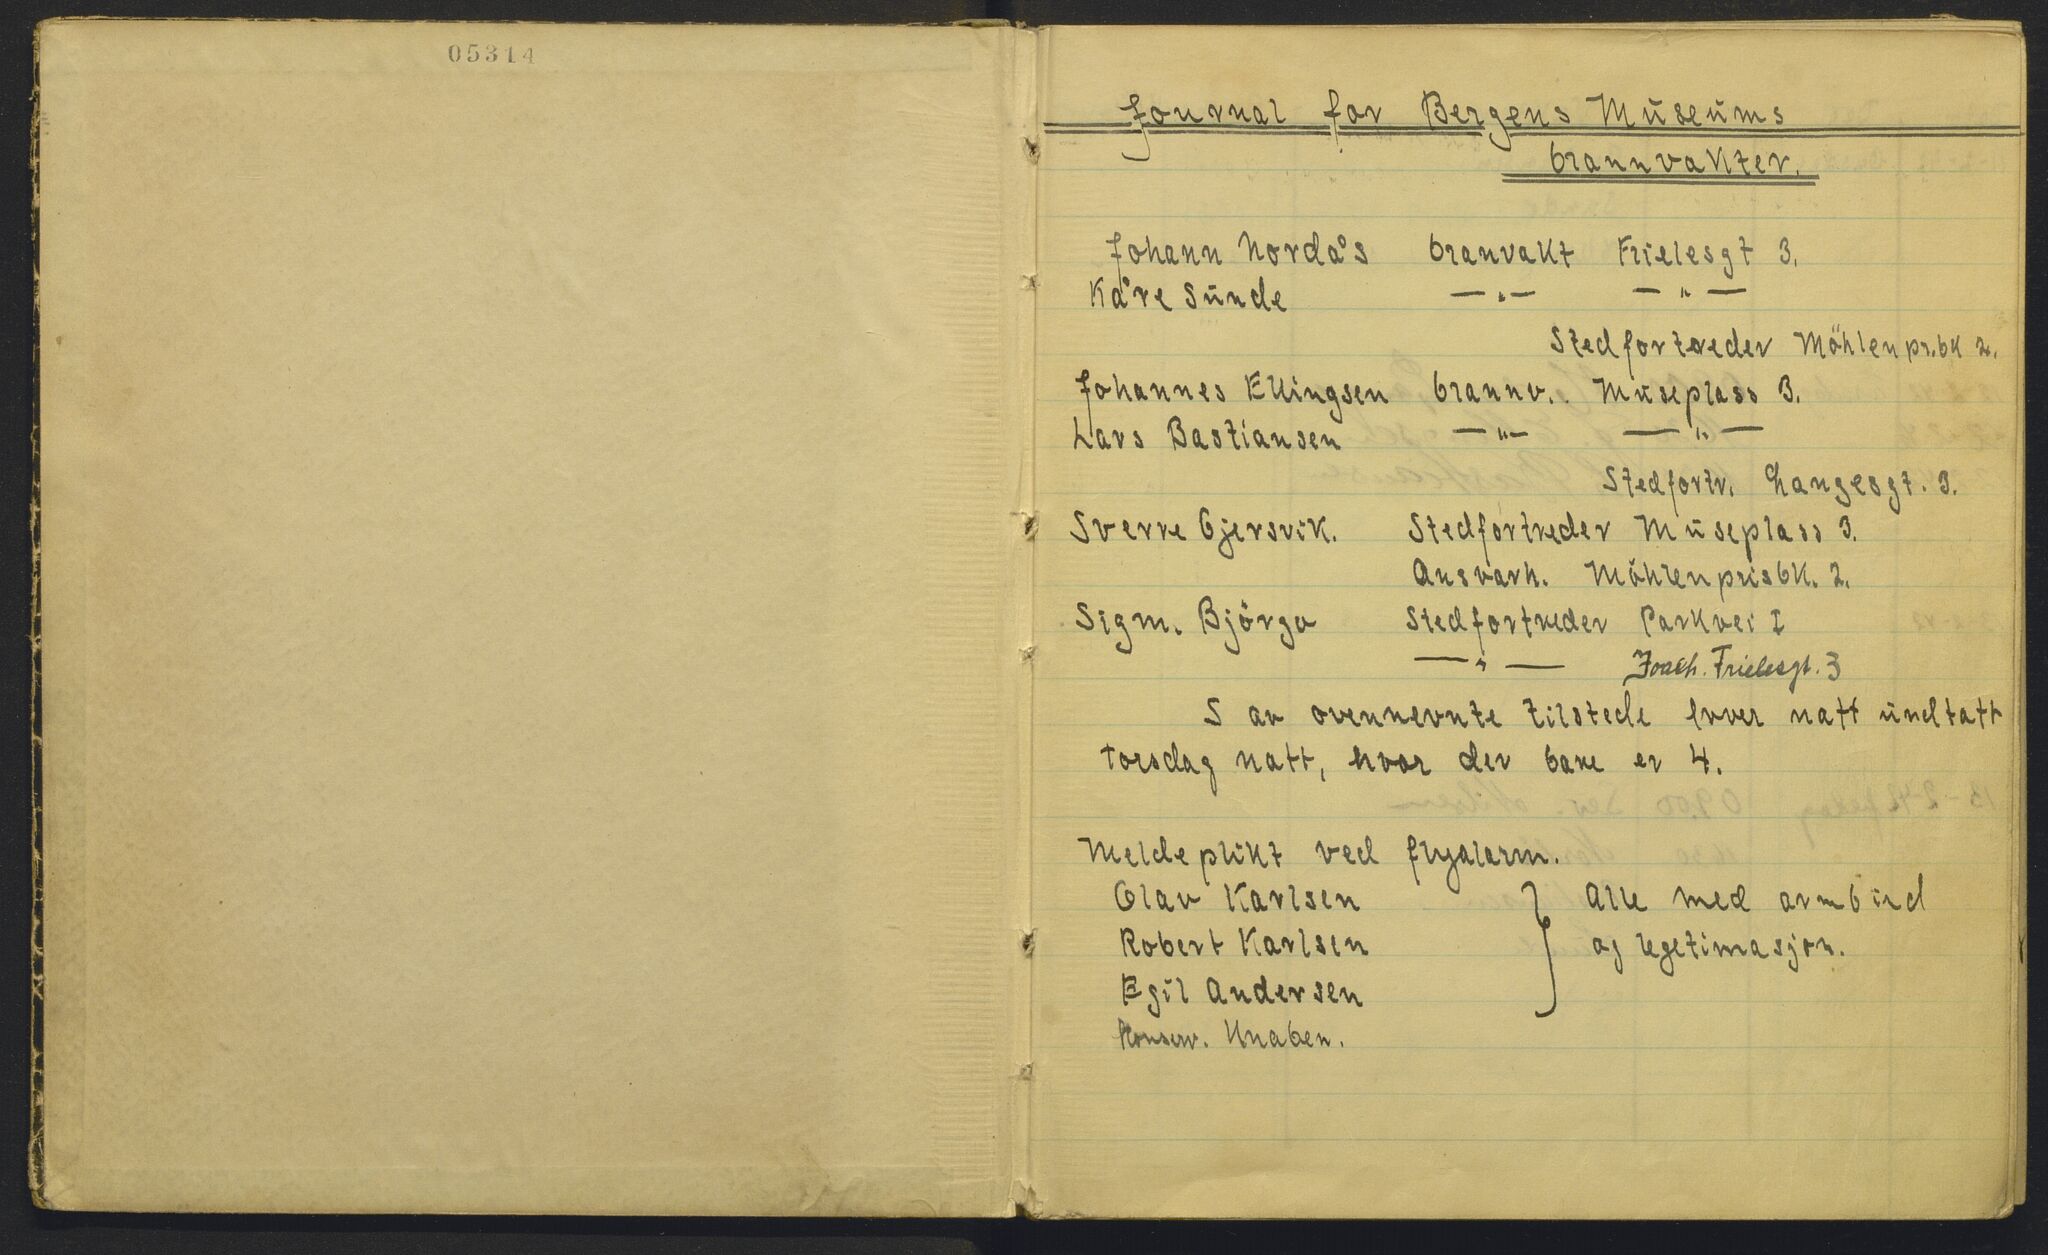 05314
Journal for Bergens Museums
brannvakter.
Johann Nordås branvakt Frielesgt 3.
Kåre Sunde —„— —„—
Stedfortreder Möhlenpr.bk 2.
Johannes Ellingsen brannv.. Museplass 3.
Lars Bastiansen —„— —„—
Stedfortr. Langesgt. 3.
Sverre Gjersvik. Stedfortreder Museplass 3.
Ansvarh. Möhlenprisbk. 2.
Sigm. Björgo Stedfortreder Parkvei I
—„— Joach. Frielesgt. 3
5 av ovennevnte tilstede hver natt undtatt
torsdag natt, hvor der bare er 4.
Meldeplikt ved flyalarm.
Olav Karlsen } Alle med armbind
Robert Karlsen og legetimasjon.
Egil Andersen
Konserv. Knaben.